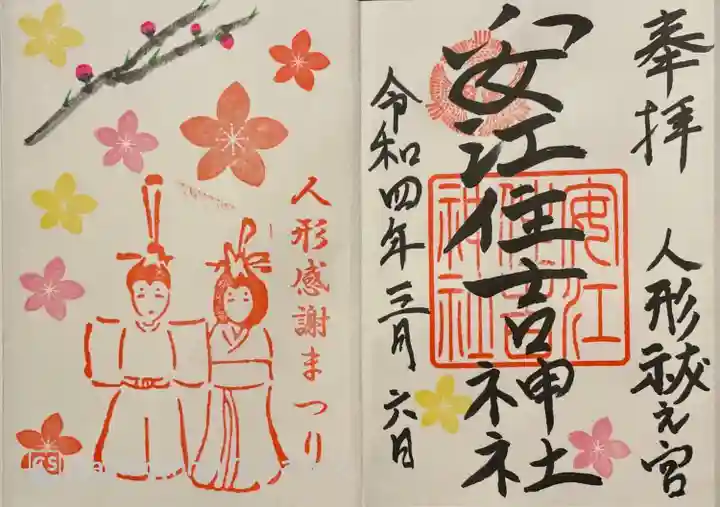 奉拝
人形祓え宮
安江住吉神社
安江
住吉
神社
令和四年三月六日
人形感謝まつり